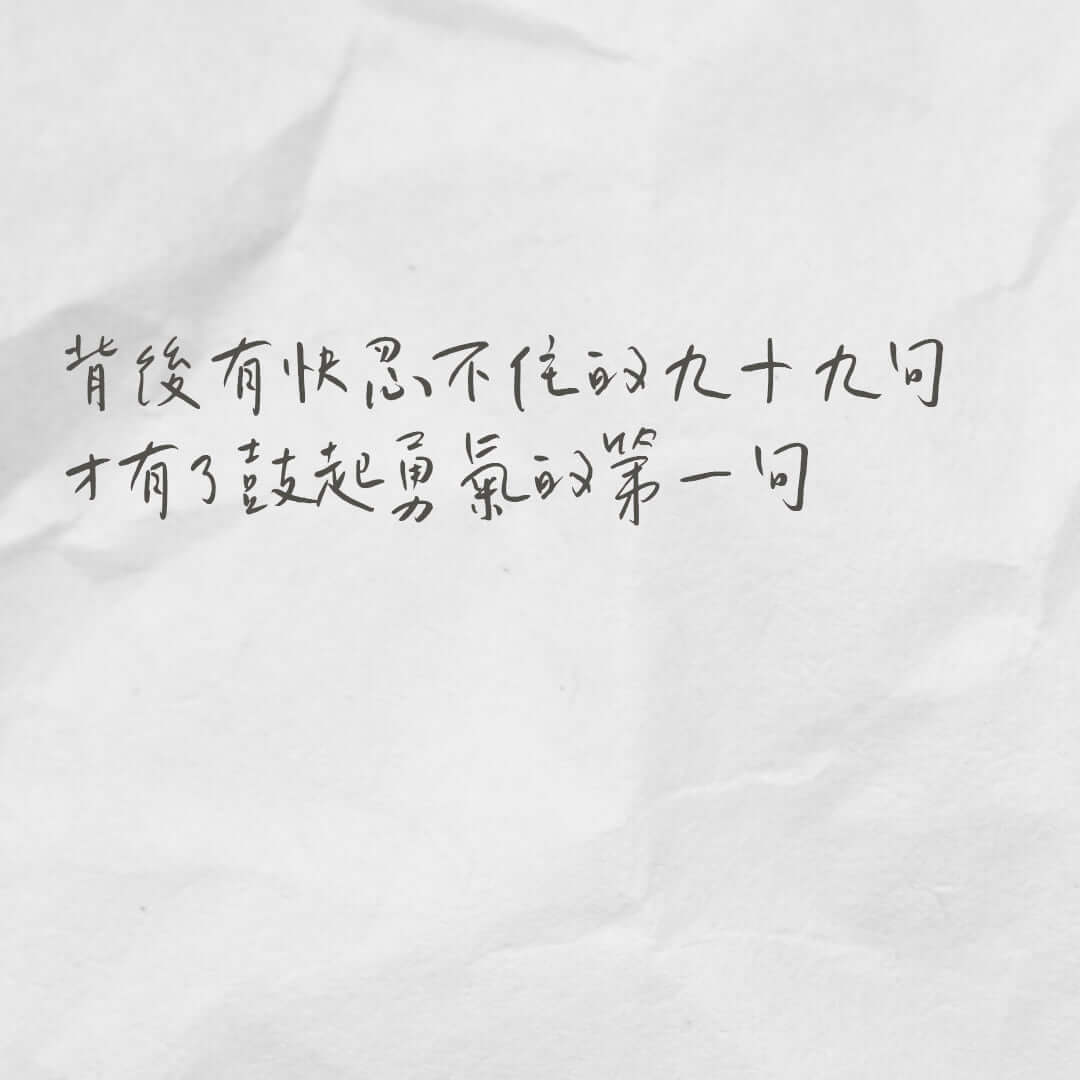 背後有快忍不住的九十九句
才有了鼓起勇氣的第一句